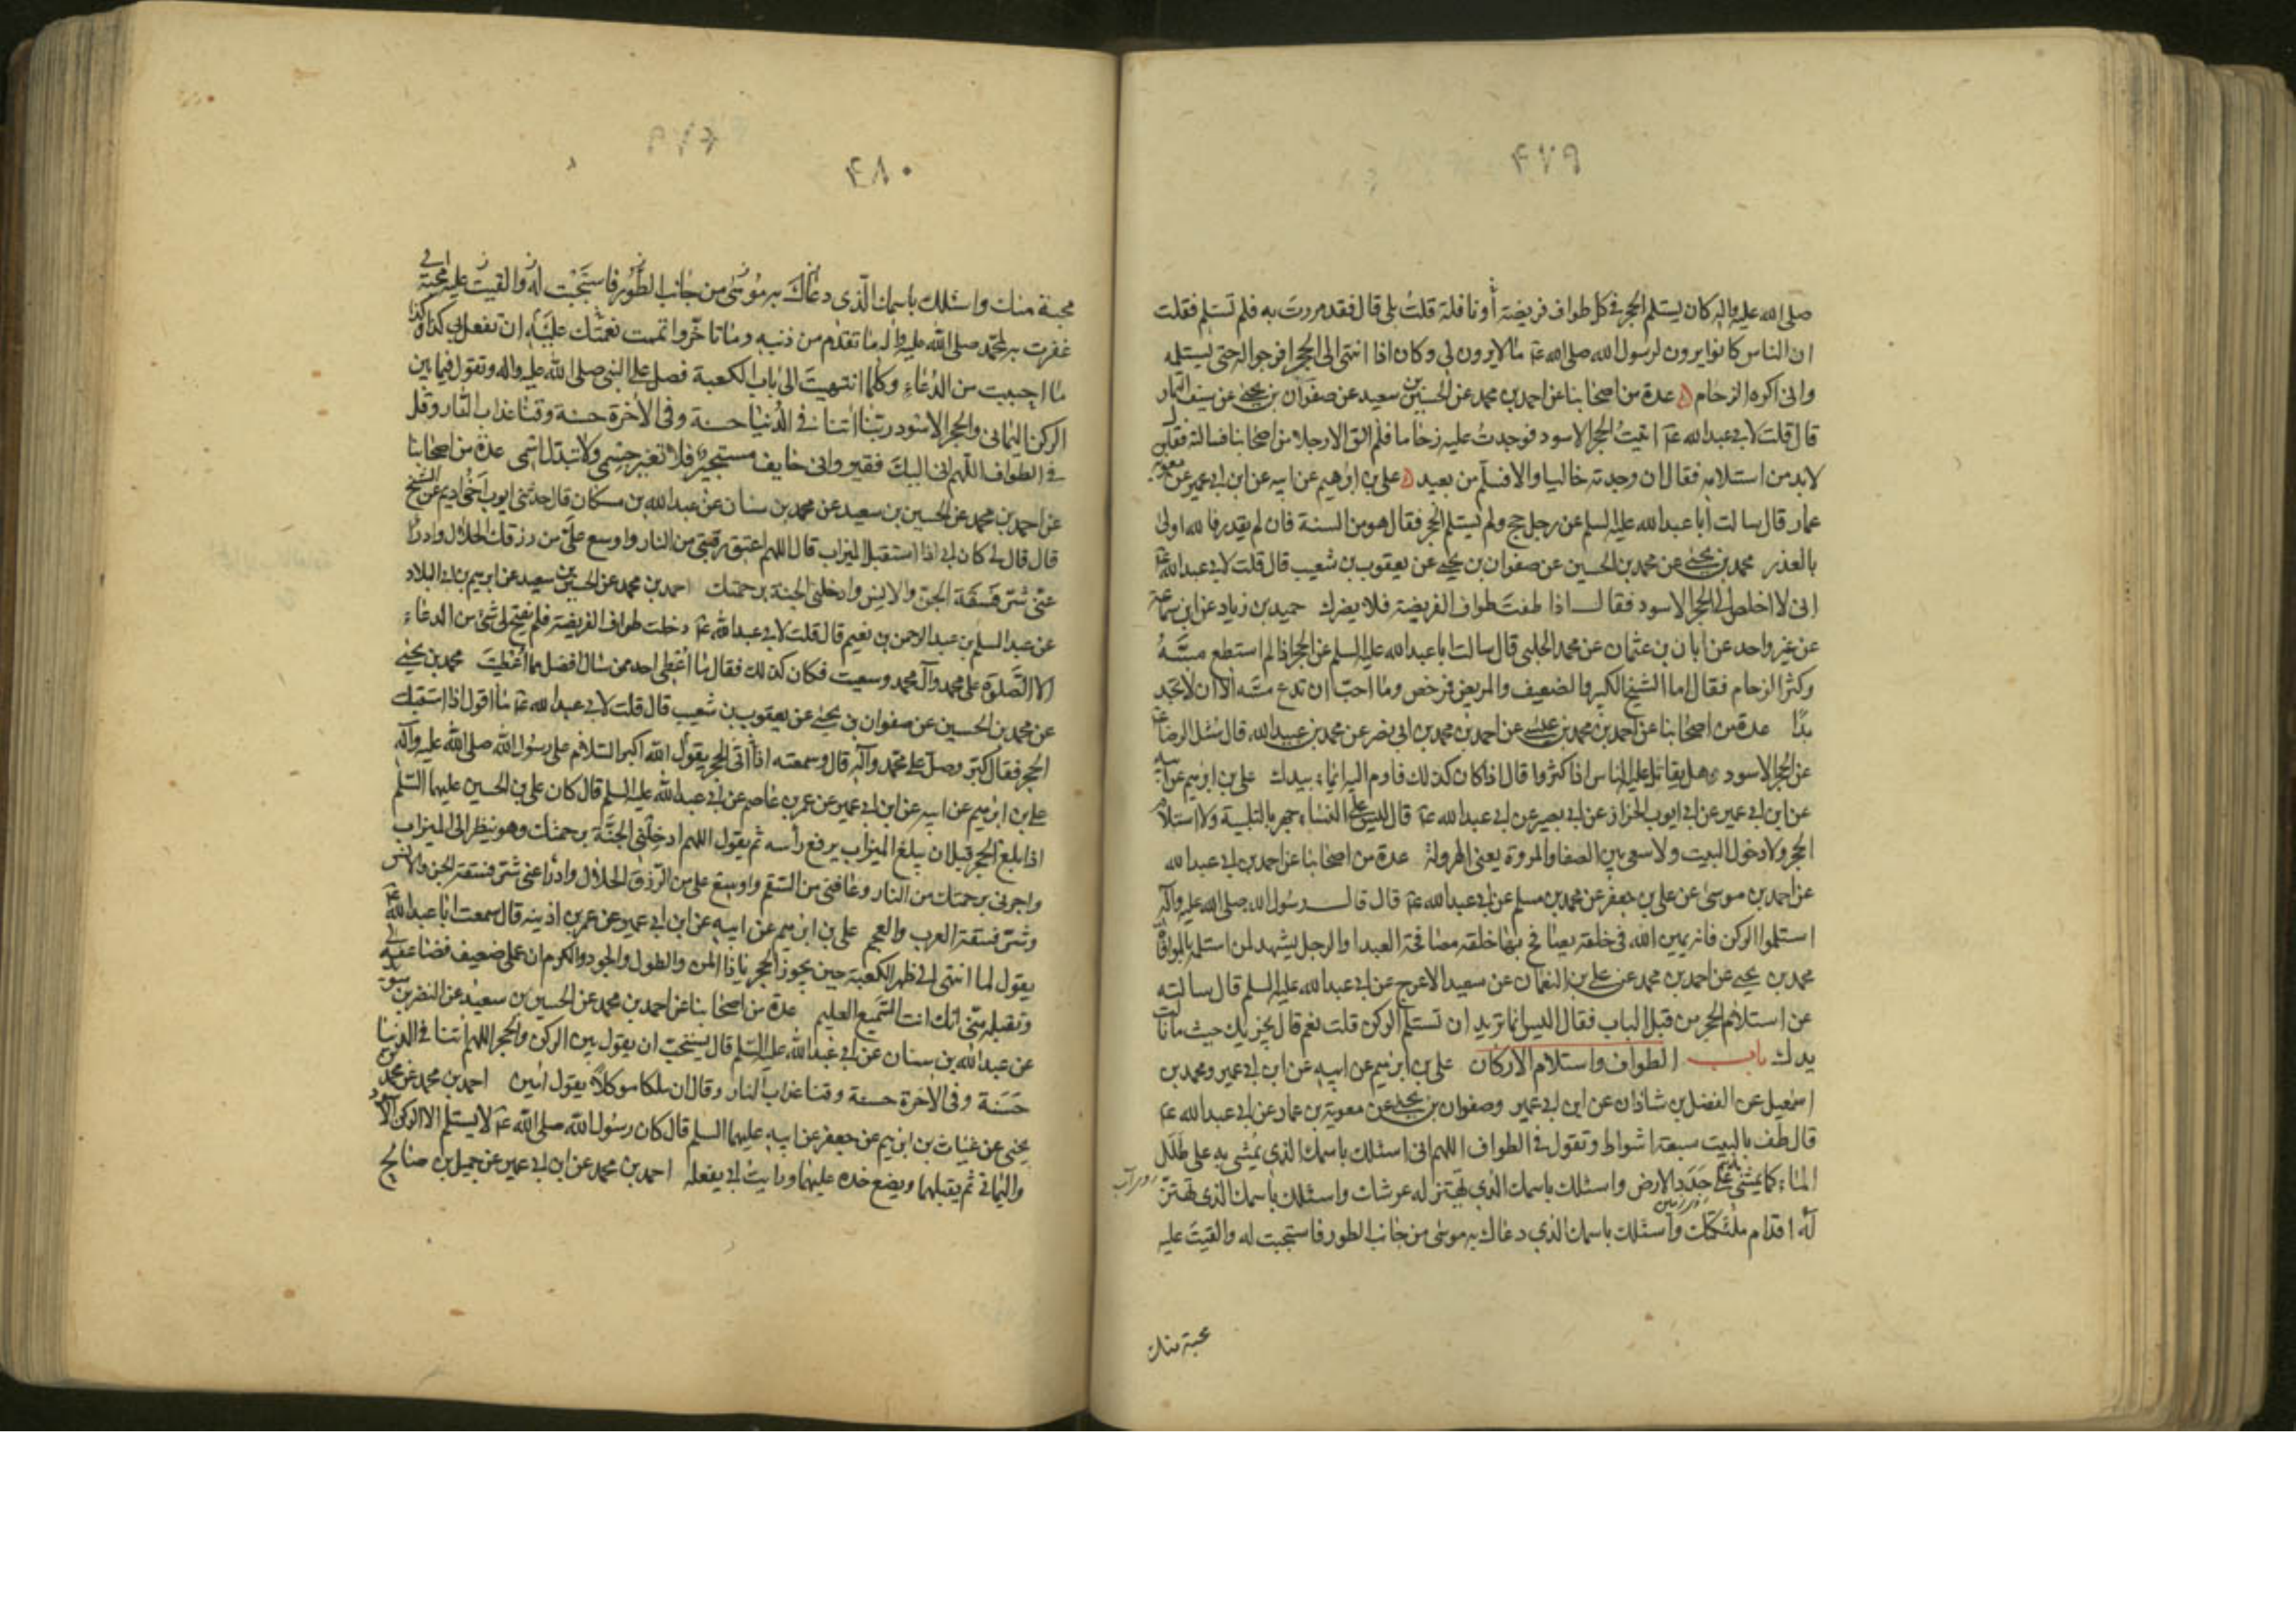 ۴۷۹
صلى الله عليه واله كان يستلم الحجر في كل طواف فريضة أو نافلة قلتُ بلى قال فقد مررت به فلم تستلم فقلت
ان الناس كانوا يرون لرسول الله صلى الله ع‍ ما لا يرون لي وكان اذا انتهى الى الحجر افرجوا له حتى يستلمه
واني اكره الزحام عدة من اصحابنا عن احمد بن محمد عن الحسين بن سعيد عن صفوان بن يحيى عن سيف التمار
قال قلت لابي عبدالله ع‍ اتيتُ الحجر الاسود فوجدتُ عليه زحاما فلم الق الا رجلا من اصحابنا فسالته فقال
لا بد من استلامه فقال ان وجدته خاليا والا فسلّم من بعيد علي بن ابرهيم عن ابيه عن ابن ابي عمير عن معوية
عمار قال سالت أبا عبدالله عليه السلم عن رجل حج ولم يستلم الحجر فقال هو من السنة فان لم يقدر فالله اولى
بالعذر محمد بن يحيى عن محمد بن الحسين عن صفوان بن يحيى عن يعقوب بن شعيب قال قلت لابي عبدالله ع‍
اني لا اخلص الى الحجر الاسود فقال اذا طفتَ طواف الفريضة فلا يضرك حميد بن زياد عن ابن سماعة
عن غير واحد عن ابان بن عثمان عن محمد الحلبي قال سالت ابا عبدالله عليه السلم عن الحجر اذا لم استطع مسّهُ
وكثر الزحام فقال اما الشيخ الكبير والضعيف والمريض فرخص وما احبّ ان تدع مسّه الا ان لا تجد
بدًا عدة من اصحابنا عن احمد بن محمد بن عيسى عن احمد بن محمد بن ابي نصر عن محمد بن عبيدالله قال سُئل الرضا ع‍
عن الحجر الاسود وهل يقاتل عليه الناس اذا كثروا قال اذا كان كذلك فاوم اليه ايماء بيدك علي بن ابرهيم عن ابيه
عن ابن ابي عمير عن ابي ايوب الخزاز عن ابي بصير عن ابي عبدالله ع‍ قال ليس على النساء جهر بالتلبية ولا استلام
الحجر ولا دخول البيت ولا سعي بين الصفا والمروة يعني الهرولة عدة من اصحابنا عن احمد بن ابي عبدالله
عن احمد بن موسى عن علي بن جعفر عن محمد بن مسلم عن ابي عبدالله ع‍ قال قال رسُول الله صلى الله عليه واله
استلموا الركن فانه يمين الله في خلقه يصافح بها خلقه مصافحة العبد او الرجل يشهد لمن استلمه بالموافاة
محمد بن يحيى عن احمد بن محمد عن علي بن النعمان عن سعيد الاعرج عن ابي عبدالله عليه السلم قال سالته
عن استلام الحجر من قبل الباب فقال اليس انما تريد ان تستلم الركن قلت نعم قال يجزيك حيث ما نالت
يدك باب الطواف واستلام الاركان علي بن ابرهيم عن ابيه عن ابن ابي عمير ومحمد بن
اسمعيل عن الفضل بن شاذان عن ابن ابي عمير وصفوان بن يحيى عن معوية بن عمار عن ابي عبدالله ع‍
قال طُف بالبيت سبعة اشواط وتقول في الطواف اللهم اني اسئلك باسمك الذي يُمشى به على طَلَل
الماء كما يمشى به على جَدَدِ الارض واسئلك باسمك الذي يهتز له عرشك واسئلك باسمك الذي تهتزّ
له اقدام ملئكتك واسئلك باسمك الذي دعاك به موسى من جانب الطور فاستجبت له والقيتَ عليه
محبة منك
۴۸۰
محبة منك واسئلك باسمك الّذي دعاك به موُسى من جانب الطّور فاستَجَبْت له والقيت عليه محبّة
غفرت به لمحمّد صلى الله عليه واله ما تقدّم من ذنبه وما تاخّر واتممت نعمتك عليه ان تفعل بي كذا وكذا
ما احببت من الدُعاء وكلما انتهيتَ الى باب الكعبة فصل على النبي صلى الله عليه واله وتقول فيما بين
الركن اليماني والحجر الاسود ربّنا اتنا في الدُنيا حسنة وفي الأخرة حسنة وقنا عذاب النّار وقل
في الطواف اللّهم اني اليكَ فقير واني خايف مستجير فلا تغير جسمي ولا تبدّل اسمي عدة من اصحابنا
عن احمد بن محمد عن الحسين بن سعيد عن محمد بن سنان عن عبدالله بن مسكان قال حدثني ايوب اخو اديم عن الشيخ
قال قال لي كان ابي اذا استقبل الميزاب قال اللهم اعتق رقبتي من النار واوسع علَيّ من رزقك الحلال وادرأ
عنّي شرّ فَسَقَة الجنّ والانِس وادخلني الجنة برحمتك احمد بن محمد عن الحسين بن سعيد عن ابرهيم بن ابي البلاد
عن عبد السلم بن عبد الرحمن بن نعيم قال قلت لابي عبدالله ع‍ دخلت طواف الفريضة فلم يفتح لي شئ من الدعاء
الا الصَّلوة على محمد وآل محمد وسعيت فكان كذلك فقال ما اُعطى احد ممن سال افضل مما اُعْطيتَ محمد بن يحيى
عن محمد بن الحسين عن صفوان بن يحيى عن يعقوب بن شعيب قال قلت لابي عبدالله ع‍ ما اقول اذا استقبلت
الحجر فقال كبّر وصلّ على محمّد وآله قال وسمعته اذا اتى الحجر يقول الله اكبر السّلام على رسُول الله صلى الله عليه وآله
علي بن ابرهيم عن ابيه عن ابن ابي عمير عن عمر بن عاصم عن ابي عبدالله عليه السلم قال كان علي بن الحسين عليهما السّلم
اذا بلغ الحجر قبل ان يبلغ الميزاب يرفع رأسه ثم يقول اللهم ادخِلني الجنَّة برحمتك وهو ينظر الى الميزاب
واجرني برحمتك من النار وعافني من السّقم واوسع على من الرّزق الحلال وادرأ عني شرّ فسقة الجن والانس
وشرّ فسقة العرب والعجم علي بن ابرهيم عن ابيه عن ابن ابي عمير عن عمر بن اذينه قال سمعت ابا عبدالله ع‍
يقول لما انتهى الى ظهر الكعبة حين يجوز الحجر يا ذا المن والطول والجود والكرم ان عملي ضعيف فضاعفه لي
وتقبله منّي انك انت السّميع العليم عدة من اصحابنا عن احمد بن محمد عن الحسين بن سعيد عن النضر بن سويد
عن عبدالله بن سنان عن ابي عبدالله عليه السّلم قال يستحبّ ان يقول بين الركن والحجر اللهم اتنا في الدنيا
حَسَنة وفي الاخرة حسنة وقنا عذاب النار وقال ان ملكا موكلاً يقول امين احمد بن محمد عن محمد بن
يحيى عن غياث بن ابرهيم عن جعفر عن ابيه عليهما السلم قال كان رسُول الله صلى الله ع‍ لا يستلم الا الركن الاسود
واليماني ثم يقبلهما ويضع خده عليهما ورايتُ ابي يفعله احمد بن محمد عن ابن ابي عمير عن جميل بن صالح